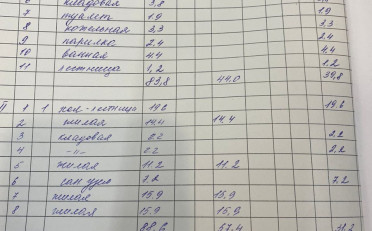 6 кладовая 3,8
7 туалет 1,9 1,9
8 котельная 3,3 3,3
9 парилка 2,4 2,4
10 ванная 4,4 4,4
11 лестница 1,2 1,2
83,8 44,0 39,8
II 1 1 кол-лестница 19,6
2 жилая 14,4 14,4
3 кладовая 2,2 2,2
4 -"- 2,2 2,2
5 жилая 11,2 11,2
6 сан.узел 7,2 7,2
7 жилая 15,9 15,9
8 жилая 15,9 15,9
88,6 57,4